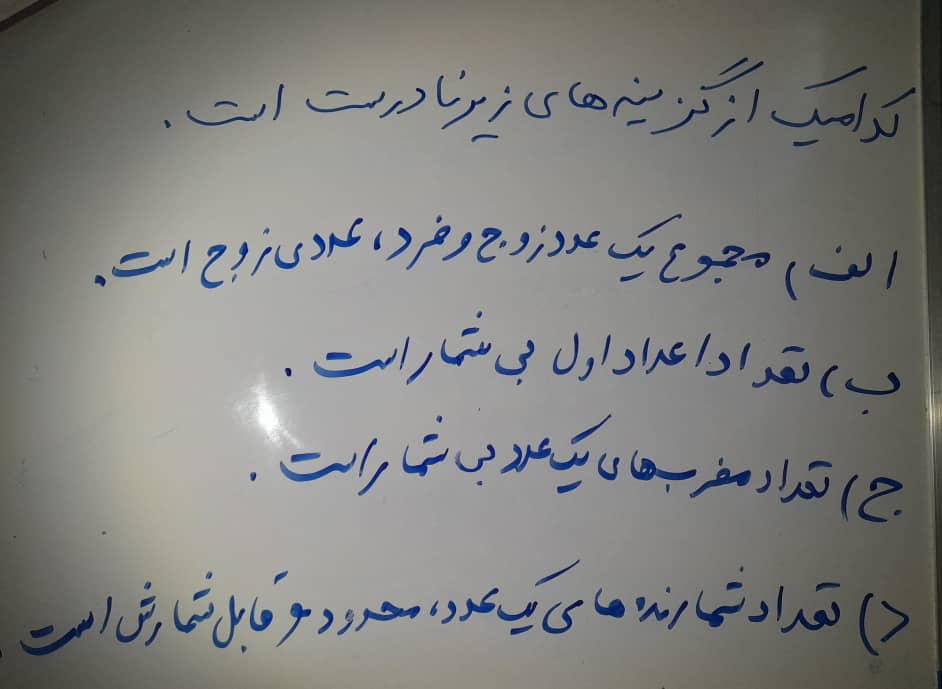 کدامیک از گزینه های زیر نادرست است.
الف) مجموع یک عدد زوج و فرد، عددی زوج است.
ب) تعداد اعداد اول بی شمار است.
ج) تعداد مضرب های یک عدد بی شمار است.
د) تعداد شمارنده های یک عدد، محدود و قابل شمارش است.